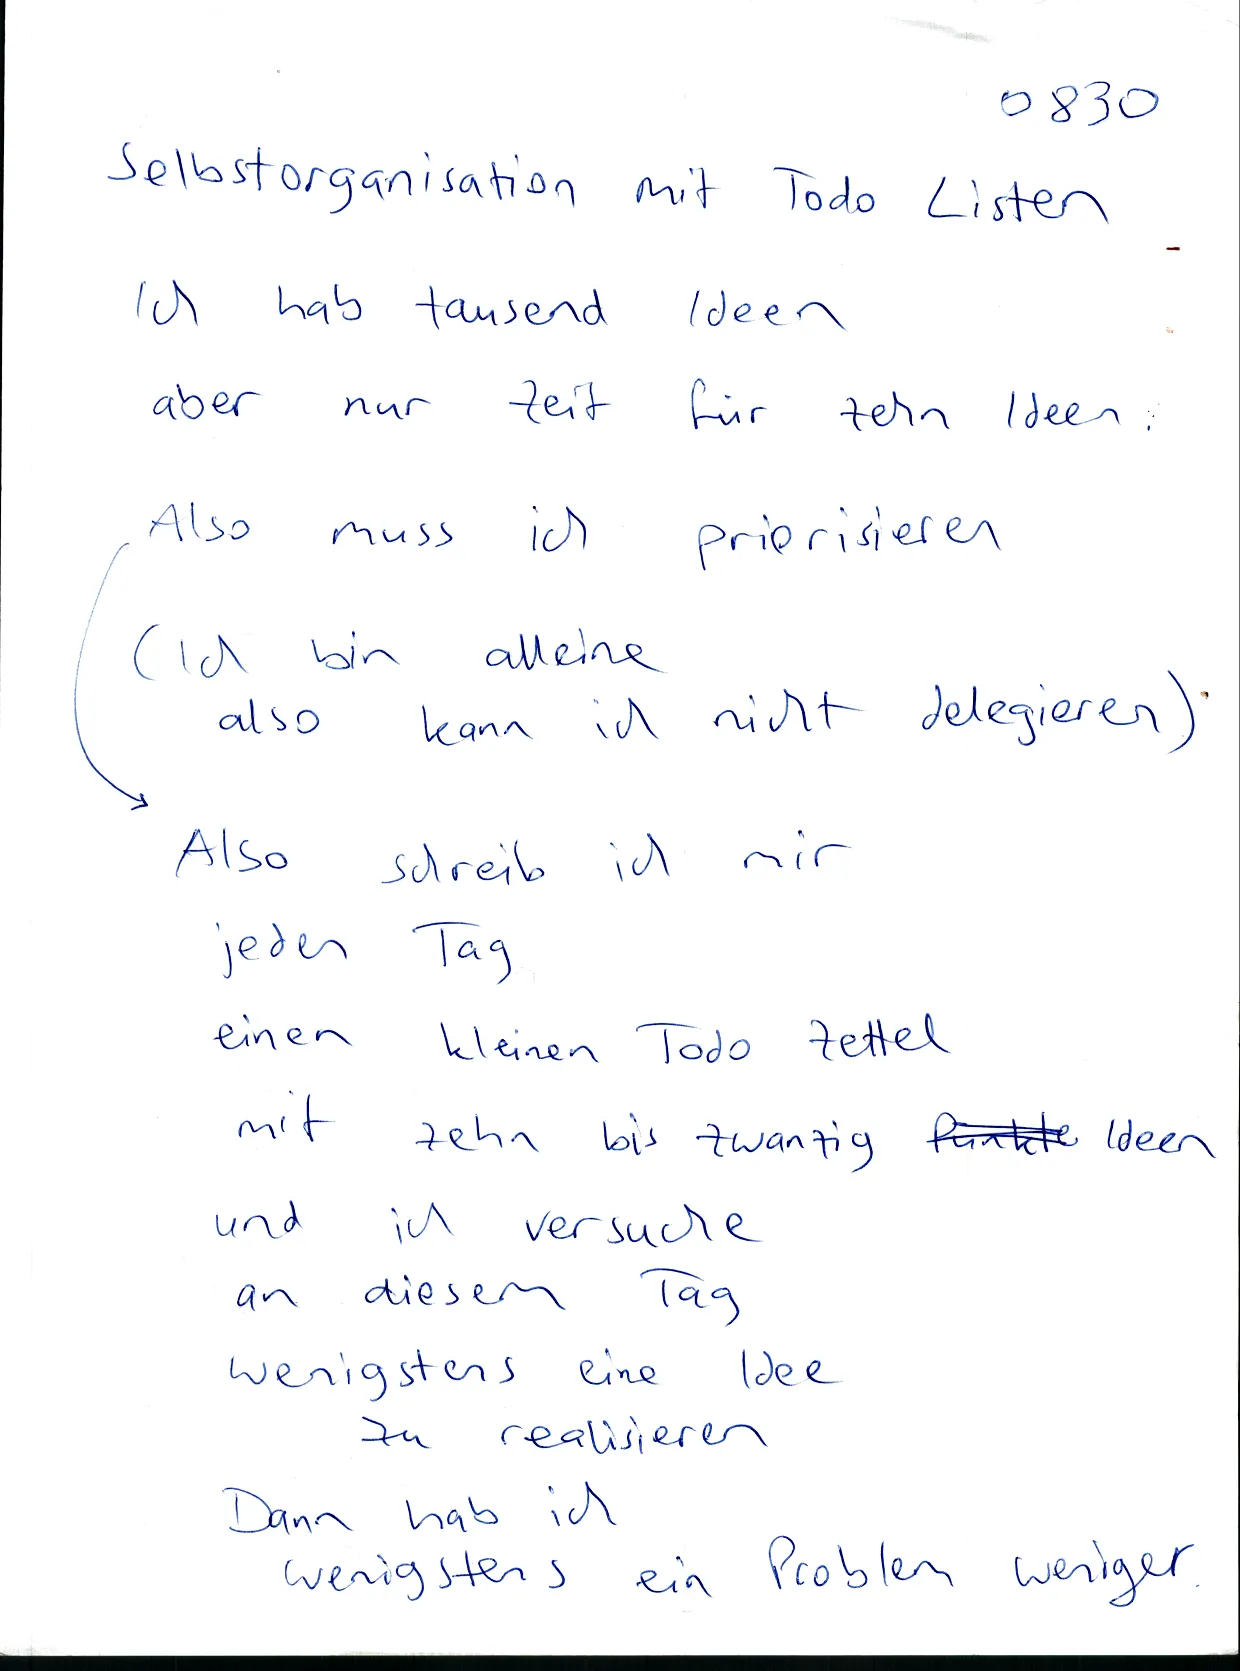 0830
Selbstorganisation mit Todo Listen
Ich hab tausend Ideen
aber nur Zeit für zehn Ideen.
Also muss ich priorisieren
(Ich bin alleine
also kann ich nicht delegieren)
Also schreib ich mir
jeden Tag
einen kleinen Todo Zettel
mit zehn bis zwanzig Punkte Ideen
und ich versuche
an diesem Tag
wenigstens eine Idee
zu realisieren
Dann hab ich
wenigstens ein Problem weniger.